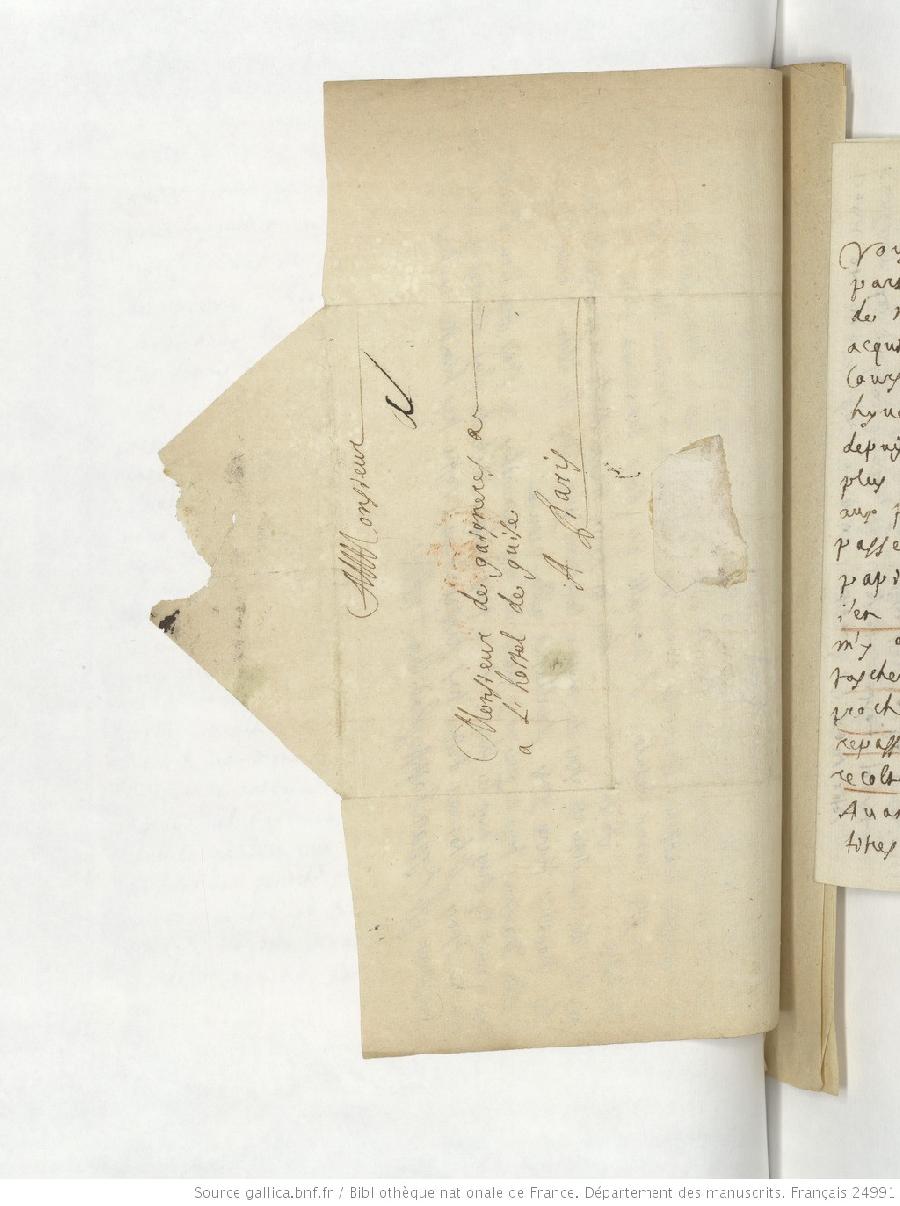 A Monsieur
Monsieur de gaigneres a
a L'hostel de guise
A Paris
par
de
acqui
Cours
depuis
plus
aux p
passe
papi
i'en
m'y
proch
repass
recolt
Auan
titres
Source gallica.bnf.fr / Bibliothèque nationale de France. Département des manuscrits. Français 24991